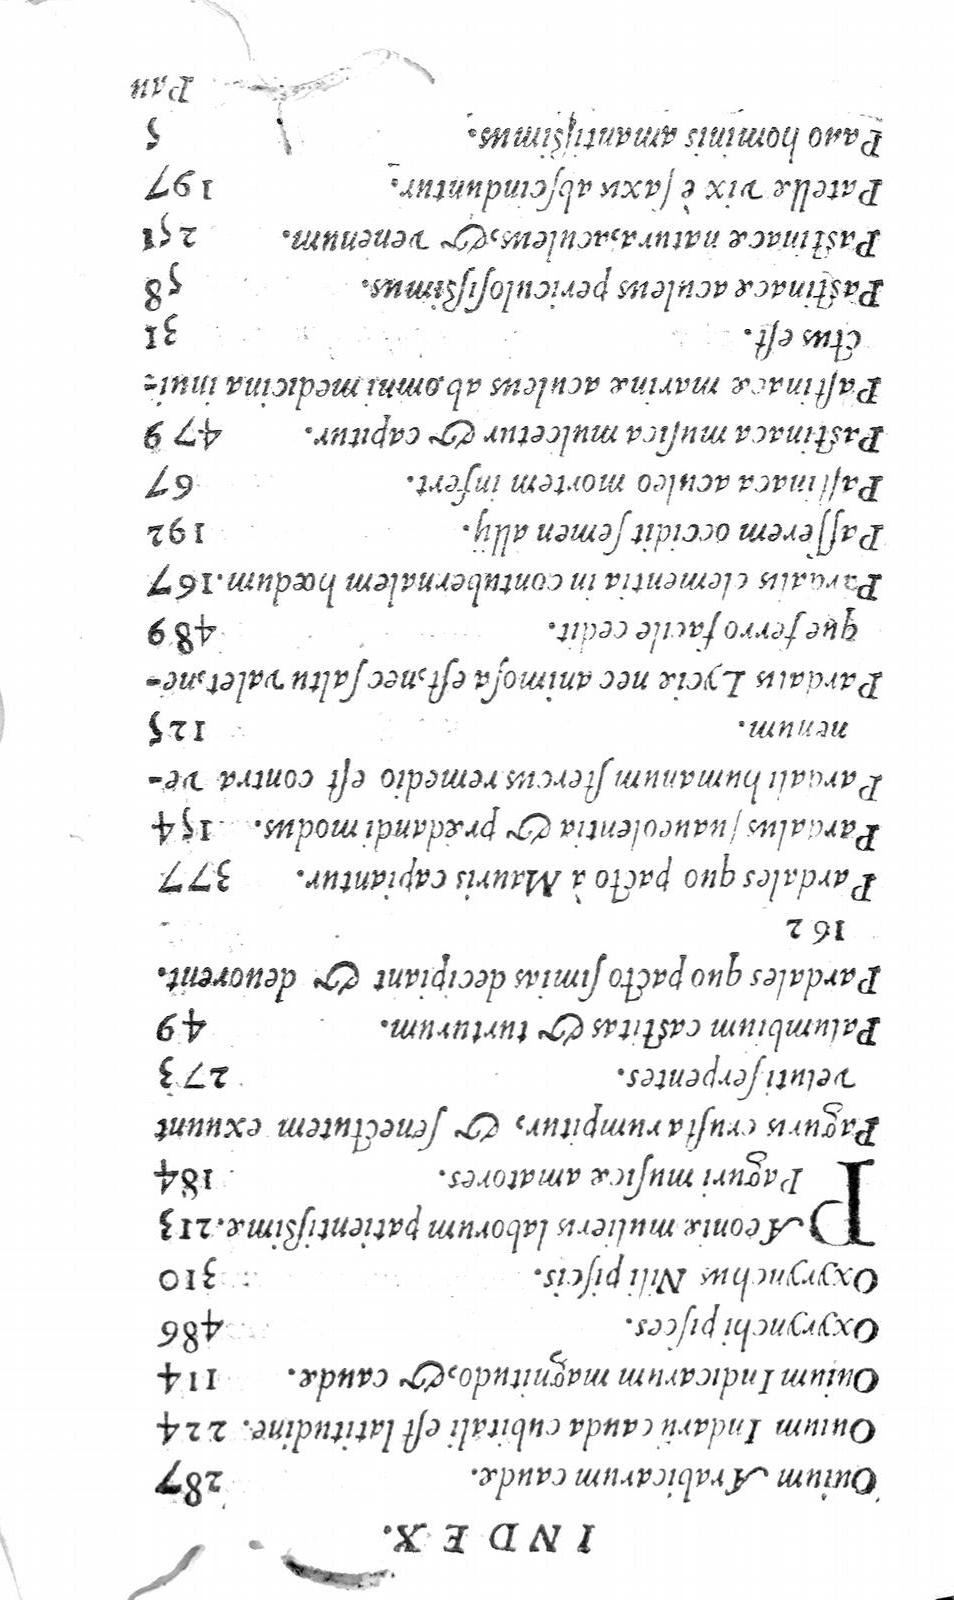 INDEX.
Ouium Arabicarum caudæ. 287
Ouium Indarũ cauda cubitali est latitudine. 224
Ouium Indicarum magnitudo, & caudæ. 114
Oxyrynchi pisces. 486
Oxyrynchus Nili piscis. 310
PÆoniæ mulieris laborum patientißimæ. 213
Paguri musicæ amatores. 184
Paguris crusta rumpitur, & senectutem exuunt
veluti serpentes. 273
Palumbium castitas & turturum. 49
Pardales quo pacto simias decipiant & deuorent.
162
Pardales quo pacto à Mauris capiantur. 377
Pardalus suaueolentia & prædandi modus. 154
Pardali humanum stercus remedio est contra ve-
nenum. 125
Pardalis Lyciæ nec animosa est, nec saltu valet, ne-
que ferro facile cedit. 489
Pardalis clementia in contubernalem hœdum. 167
Passerem occidit semen alij. 192
Pastinaca aculeo mortem infert. 67
Pastinaca musica mulcetur & capitur. 479
Pastinacæ marinæ aculeus ab omni medicina inui-
ctus est. 31
Pastinacæ aculeus periculosißimus. 58
Pastinacæ natura, aculeus, & venenum. 251
Patellæ vix è saxis abscinduntur. 197
Pauo hominis amantißimus. 5
Pau